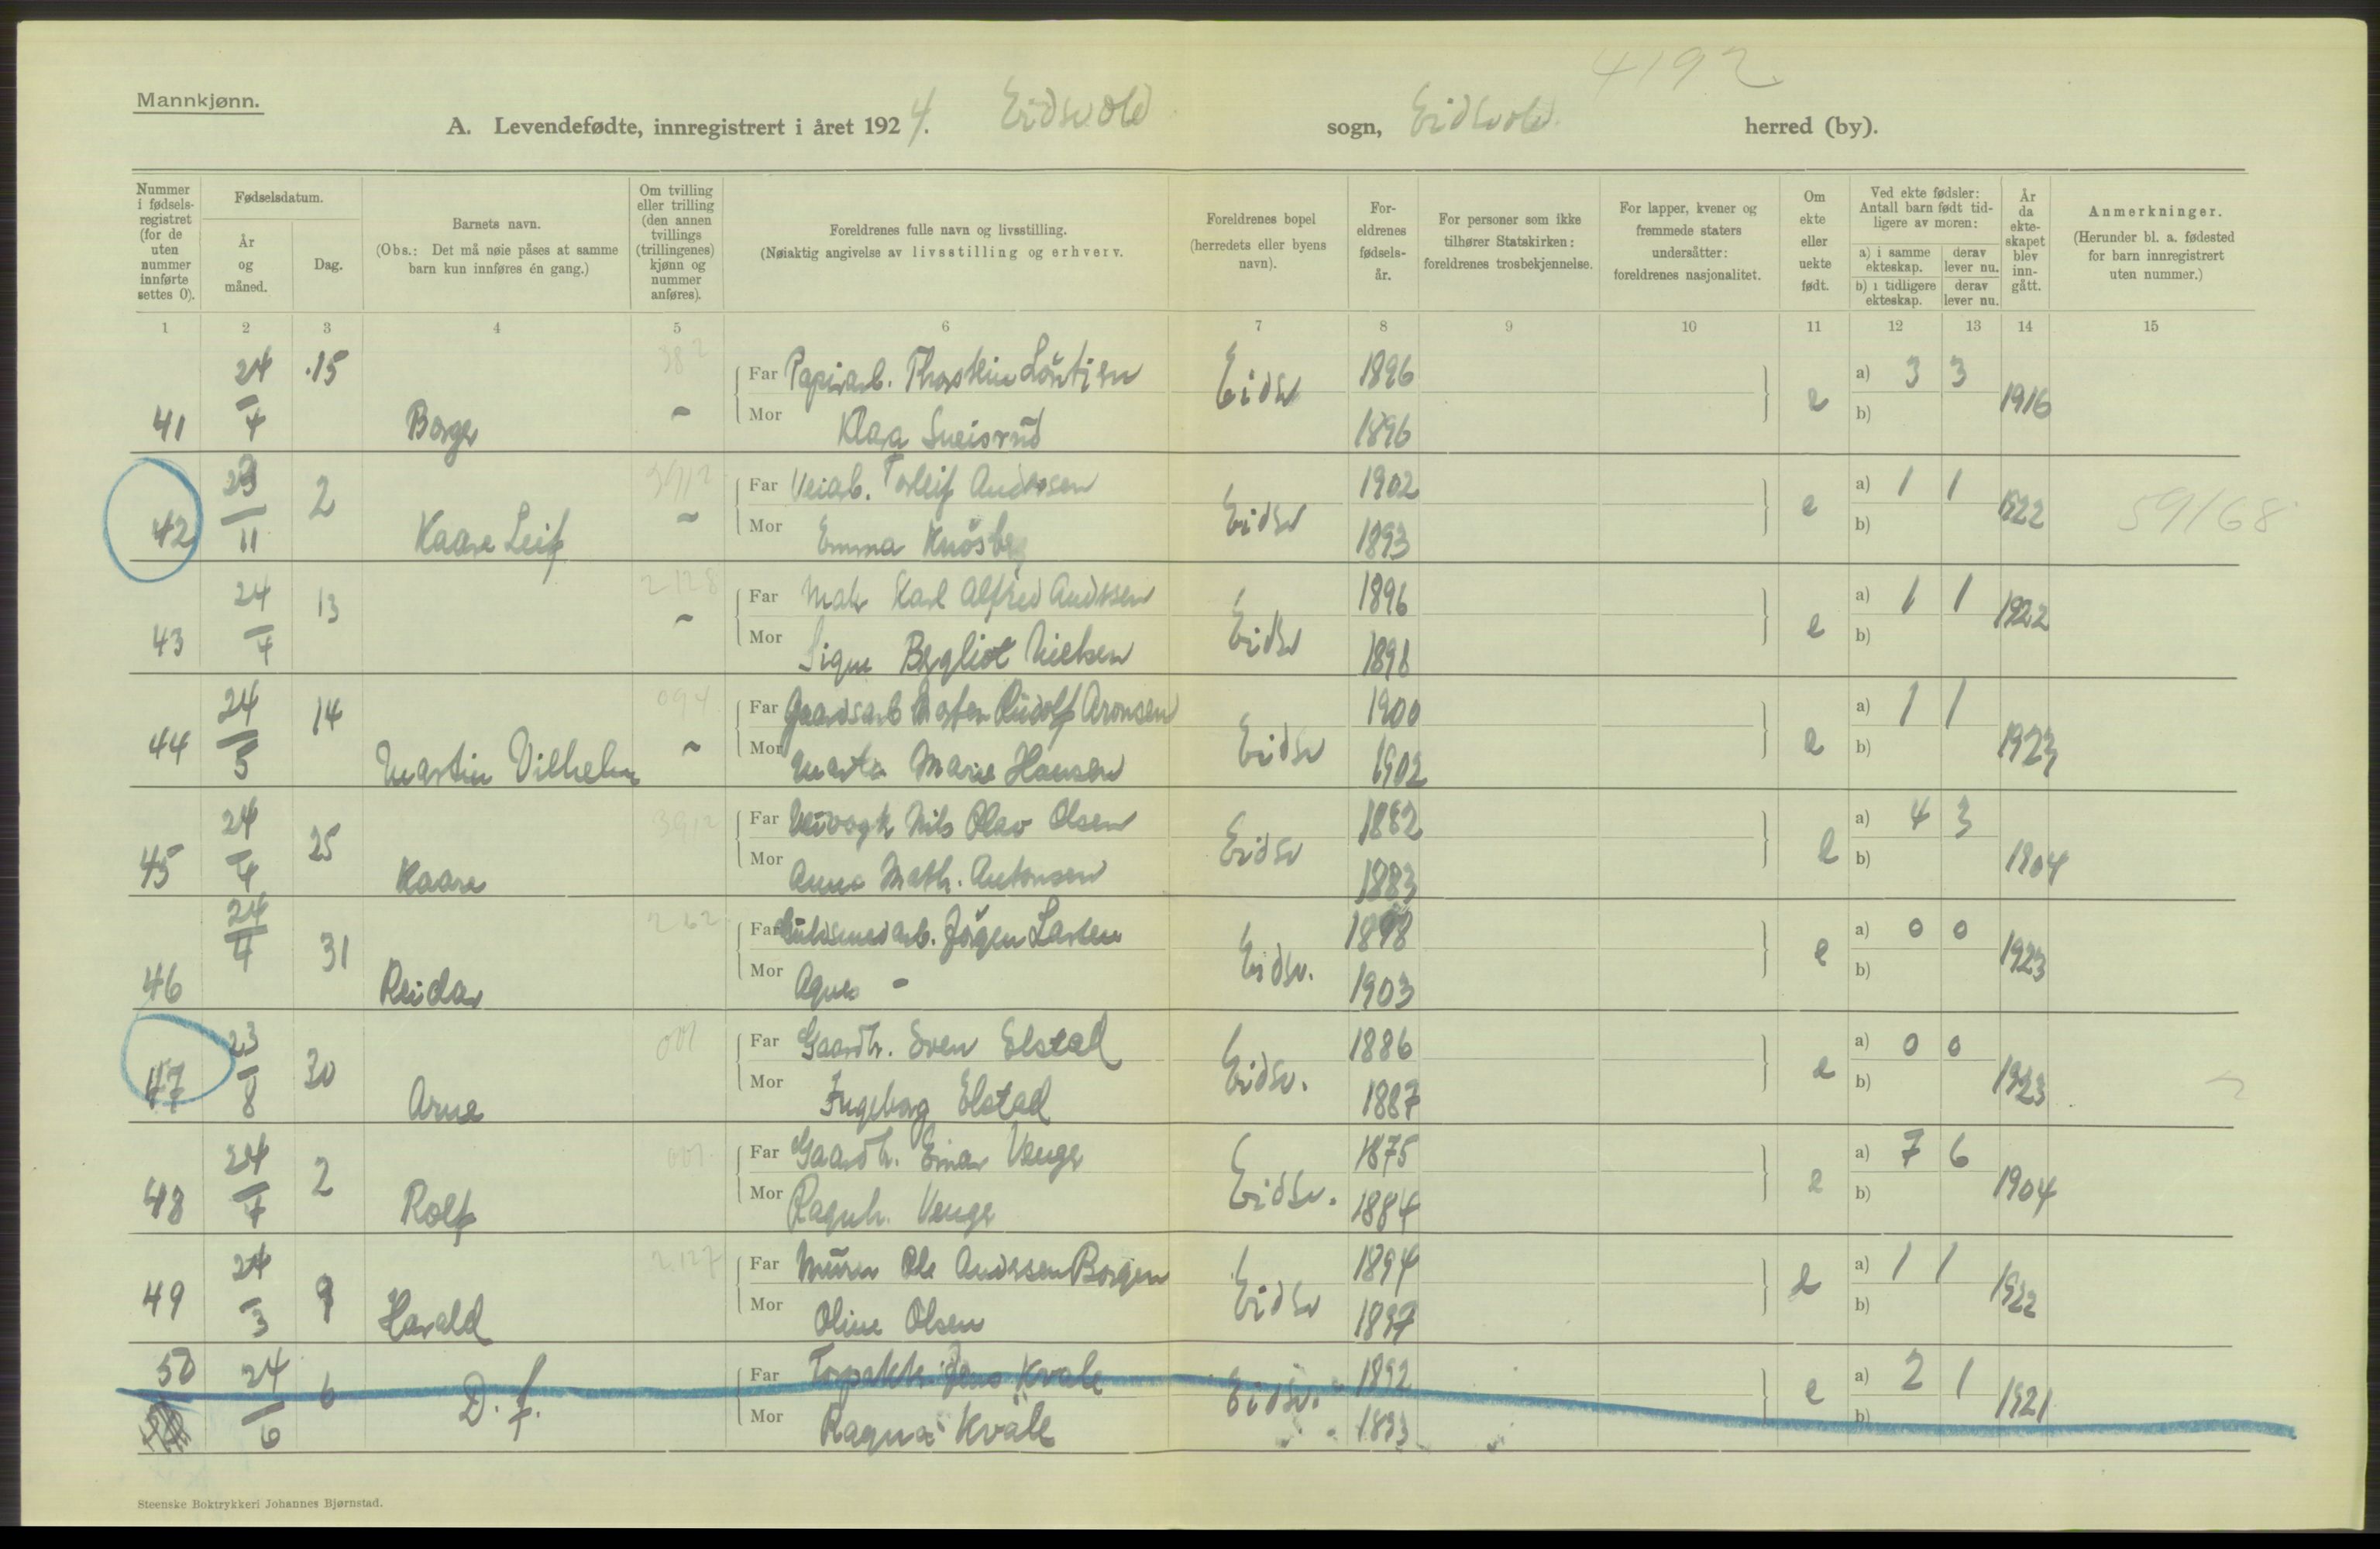 4192
Mannkjønn.
A. Levendefødte, innregistrert i året 1924. Eidsvold sogn, Eidsvold herred (by).
Nummer i fødsels-registret (for de uten nummer innførte settes 0).
Fødselsdatum.
År og måned.
Dag.
Barnets navn.
(Obs.: Det må nøie påses at samme barn kun innføres én gang.)
Om tvilling eller trilling (den annen tvillings (trillingenes) kjønn og nummer anføres).
Foreldrenes fulle navn og livsstilling.
(Nøiaktig angivelse av livsstilling og erhverv.
Foreldrenes bopel (herredets eller byens navn).
For-eldrenes fødsels-år.
For personer som ikke tilhører Statskirken: foreldrenes trosbekjennelse.
For lapper, kvener og fremmede staters undersåtter: foreldrenes nasjonalitet.
Om ekte eller uekte født.
Ved ekte fødsler: Antall barn født tid-ligere av moren:
a) i samme ekteskap. derav lever nu.
b) i tidligere ekteskap. derav lever nu.
År da ekte-skapet blev inn-gått.
Anmerkninger.
(Herunder bl. a. fødested for barn innregistrert uten nummer.)
1 2 3 4 5 6 7 8 9 10 11 12 13 14 15
41 24/4 15 Borger 382 - Far Papirarb. Thorstein Eidsv 1896 e a) 3 3 1916
Mor Klara Sneisrud 1896 b)
42 23/11 2 Kaare Leif 3912 - Far Veiarb. Torleif Andersen Eidsv 1902 e a) 1 1 1922 59/68
Mor Emma 1893 b)
43 24/4 13 2128 - Far Karl Alfred Andersen Eidsv 1896 e a) 1 1 1922
Mor Signe Bergliot Nielsen 1898 b)
44 24/5 14 Martin Vilhelm 094 - Far Gaardsarb Rudolf Aronsen Eidsv 1900 e a) 1 1 1923
Mor Marta Marie Hansen 1902 b)
45 24/4 25 Kaare 3912 Far Veivogt Nils Olav Olsen Eidsv 1882 e a) 4 3 1904
Mor Anna Math. Antonsen 1883 b)
46 24/4 31 Reidar 262 Far Guldsmedarb. Jörgen Larsen Eidsv. 1898 e a) 0 0 1923
Mor Agnes - 1903 b)
47 23/8 30 Arne 001 Far Gaardbr. Sven Elstad Eidsv. 1886 e a) 0 0 1923
Mor Ingeborg Elstad 1887 b)
48 24/7 2 Rolf 001 Far Gaardbr. Einar Venger Eidsv. 1875 e a) 7 6 1904
Mor Ragnh. Venger 1884 b)
49 24/3 9 Harald 2127 Far Murer Ole Andersen Borgen Eidsv 1894 e a) 1 1 1922
Mor Oline Olsen 1897 b)
50 24/6 6 D. f. Far Jens Kvale Eidsv. 1892 e a) 2 1 1921
Mor Ragna Kvale 1893 b)
Steenske Boktrykkeri Johannes Bjørnstad.